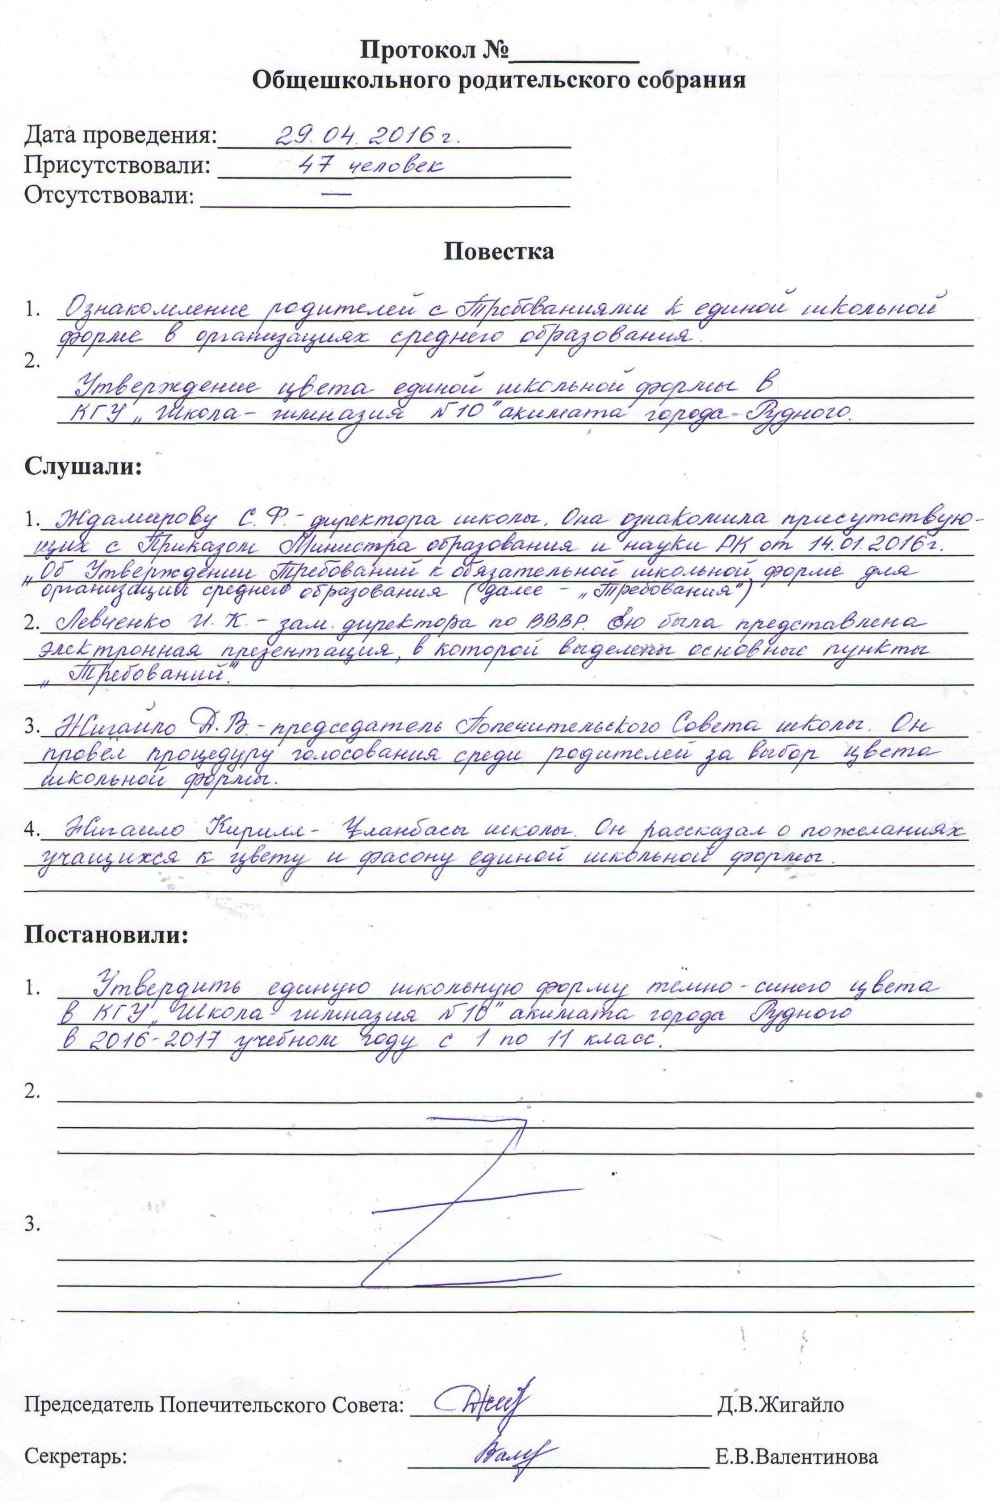 Протокол №
Общешкольного родительского собрания
Дата проведения: 29.04.2016г.
Присутствовали: 47 человек
Отсутствовали: —
Повестка
1. Ознакомление родителей с Требованиями к единой школьной
форме в организациях среднего образования.
2.
Утверждение цвета единой школьной формы в
КГУ „Школа-гимназия №10" акимата города Рудного.
Слушали:
1. Ждамирову С.Ф. - директора школы. Она ознакомила присутствую-
щих с Приказом Министра образования и науки РК от 14.01.2016г.
„Об Утверждении Требований к обязательной школьной форме для
организаций среднего образования (далее - „Требования")
2. Левченко И.К. - зам. директора по ВВВР. Ею была представлена
электронная презентация, в которой выделены основные пункты
„Требований".
3. Жигайло Д.В. - председатель Попечительского Совета школы. Он
провёл процедуру голосования среди родителей за выбор цвета
школьной формы.
4. Жигайло Кирилл - Уланбасы школы. Он рассказал о пожеланиях
учащихся к цвету и фасону единой школьной формы.
Постановили:
1. Утвердить единую школьную форму тёмно-синего цвета
в КГУ „Школа-гимназия №10" акимата города Рудного
в 2016-2017 учебном году с 1 по 11 класс.
2.
3.
Председатель Попечительского Совета: Д.В.Жигайло
Секретарь: Е.В.Валентинова